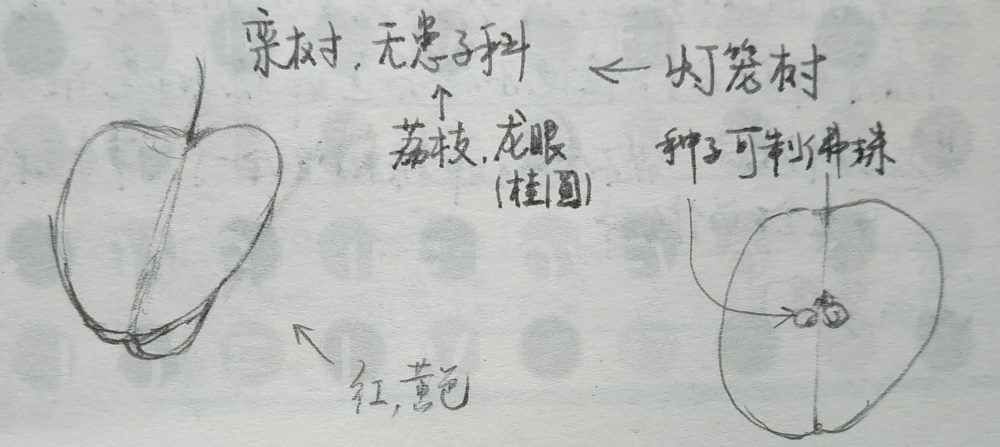 栾树,无患子科
← 灯笼树
↑
荔枝,龙眼
(桂圆)
种子可制佛珠
红,黄色